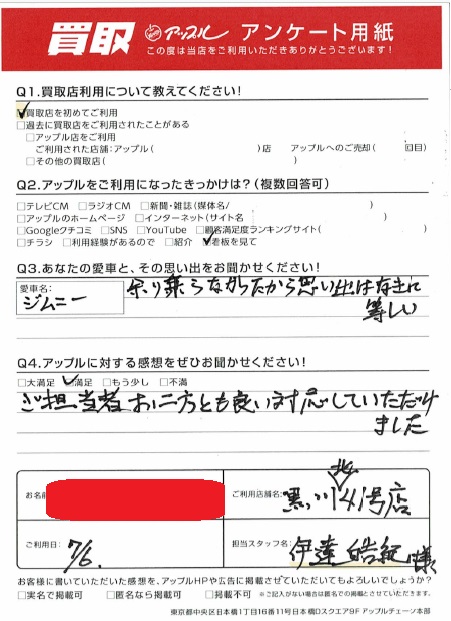 買取 アップル アンケート用紙
この度は当店をご利用いただきありがとうございます！
Q1.買取店利用について教えてください！
☑買取店を初めてご利用
□過去に買取店をご利用されたことがある
□アップル店をご利用
ご利用された店舗：アップル（ ）店 アップルへのご売却（ 回目）
□その他の買取店（ ）
Q2.アップルをご利用になったきっかけは？（複数回答可）
□テレビCM □ラジオCM □新聞・雑誌（媒体名/ ）
□アップルのホームページ □インターネット（サイト名 ）
□Googleクチコミ □SNS □YouTube □顧客満足度ランキングサイト（ ）
□チラシ □利用経験があるので □紹介 ☑看板を見て
Q3.あなたの愛車と、その思い出をお聞かせください！
愛車名：
ジムニー
余り乗らなかったから思い出はなきに
等しい
Q4.アップルに対する感想をぜひお聞かせください！
□大満足 ☑満足 □もう少し □不満
ご担当者お二方とも良い対応していただけ
ました
お名前
ご利用店舗名：
黒川北41号店
ご利用日：
7/6.
担当スタッフ名：
伊達 皓紀 様
お客様に書いていただいた感想を、アップルHPや広告に掲載させていただいてもよろしいでしょうか？
□実名で掲載可 □匿名なら掲載可 □掲載不可 ※ご記入がない場合は匿名での掲載とさせていただきます。
東京都中央区日本橋1丁目16番11号日本橋Dスクエア9F アップルチェーン本部